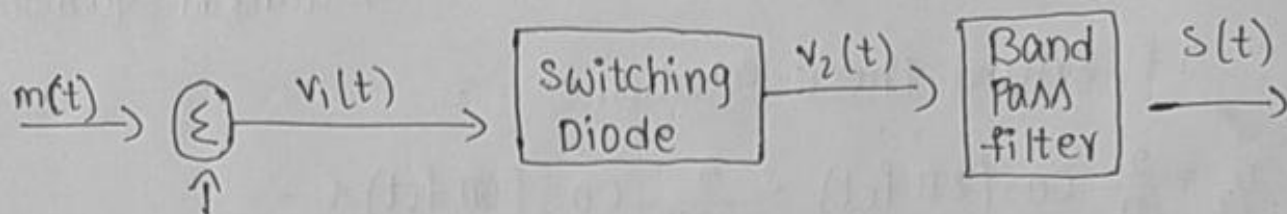 m(t)
Σ
v₁(t)
Switching
Diode
v₂(t)
Band
Pass
filter
S(t)